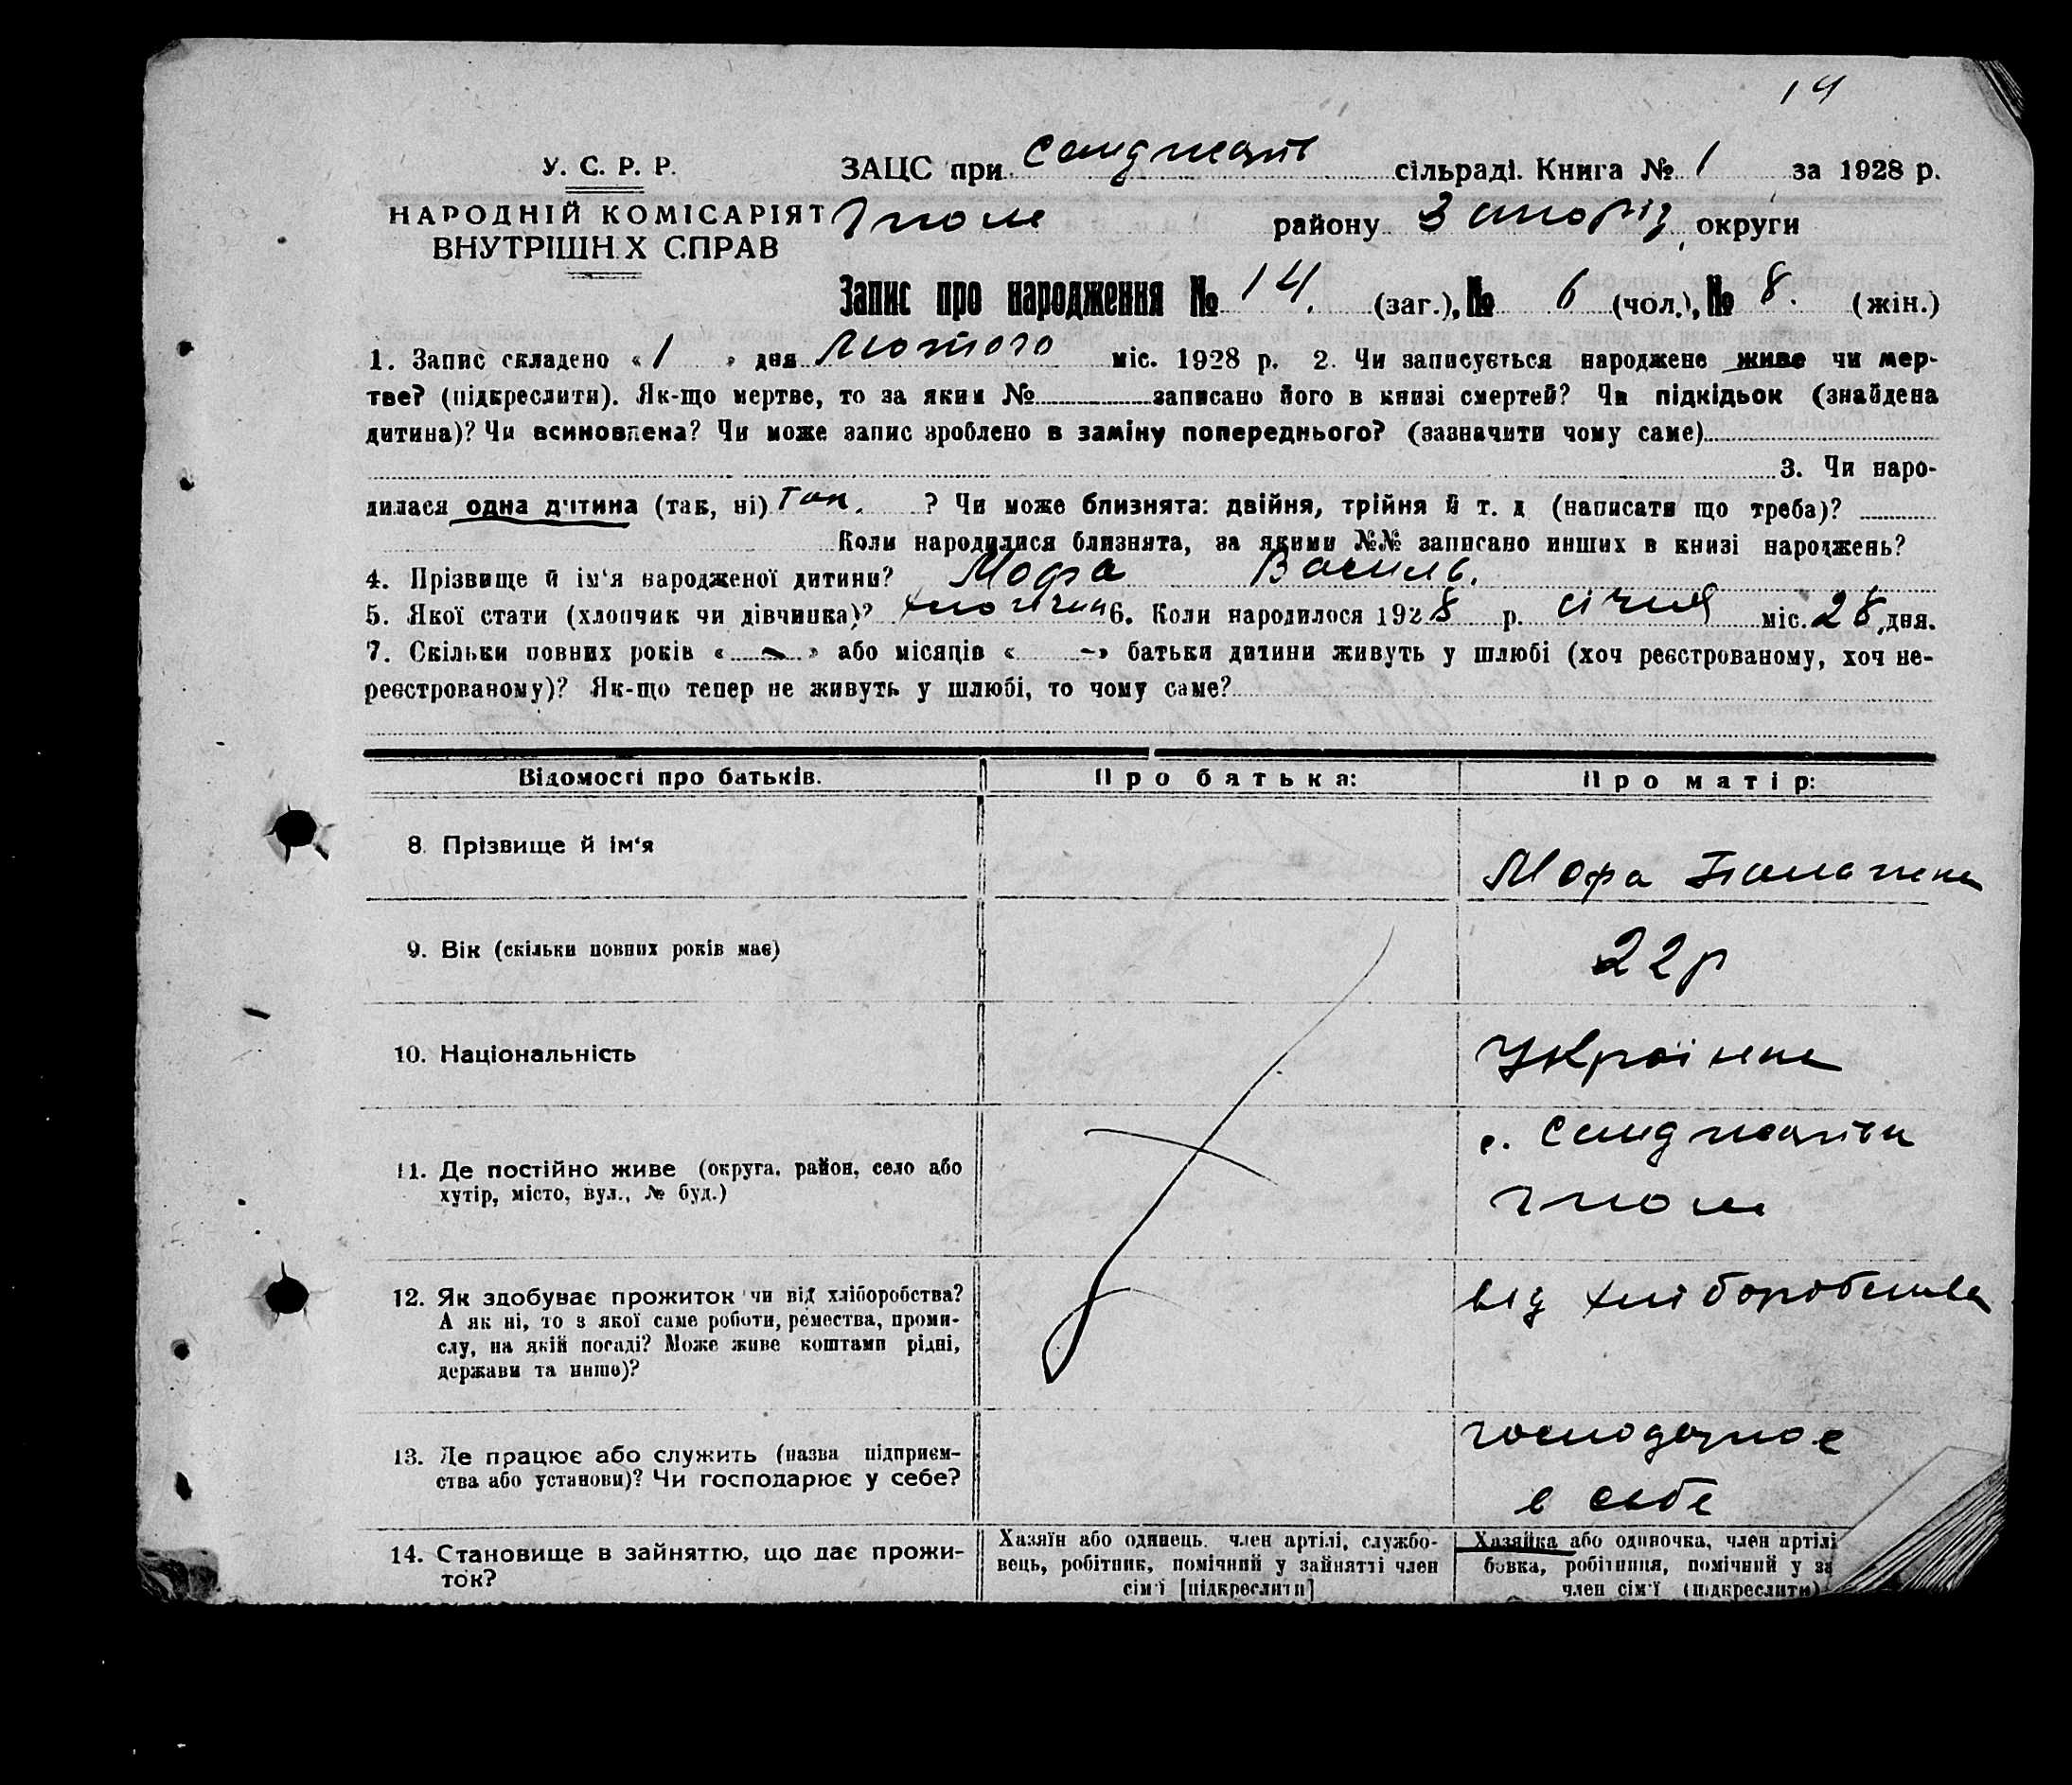 14
У. С. Р. Р.
НАРОДНІЙ КОМІСАРІЯТ
ВНУТРІШН Х СПРАВ
ЗАЦС при сільраді. Книга № 1 за 1928 р.
району Запоріз. округи
Запис про народження № 14. (заг.), № 6 (чол.), № 8. (жін.)
1. Запис складено « 1 » дня Лютого міс. 1928 р. 2. Чи записується народжене живе чи мер-
тве? (підкреслити). Як-що мертве, то за яким № записано його в книзі смертей? Чи підкідьок (знайдена
дитина)? Чи всиновлена? Чи може запис зроблено в заміну попереднього? (зазначити чому саме)
3. Чи наро-
дилася одна дитина (так, ні) Так. ? Чи може близнята: двійня, трійня й т. д (написати що треба)?
Коли народилися близнята, за якими №№ записано инших в книзі народжень?
4. Прізвище й ім'я народженої дитини? Мофа Василь.
5. Якої стати (хлопчик чи дівчинка)? хлопчик 6. Коли народилося 1928 р. січня міс. 28 дня.
7. Скільки повних років « – » або місяців « – » батьки дитини живуть у шлюбі (хоч реєстрованому, хоч не-
реєстрованому)? Як-що тепер не живуть у шлюбі, то чому саме?
Відомості про батьків.
Про батька:
Про матір:
8. Прізвище й ім'я
Мофа
9. Вік (скільки повних років має)
22 р
10. Національність
Українка
11. Де постійно живе (округа, район, село або
хутір, місто, вул., № буд.)
с.
12. Як здобуває прожиток чи від хліборобства?
А як ні, то з якої саме роботи, ремества, проми-
слу, на якій посаді? Може живе коштами рідні,
держави та инше)?
від хліборобства
13. Де працює або служить (назва підприєм-
ства або установи)? Чи господарює у себе?
господарює
в себе
14. Становище в зайняттю, що дає прожи-
ток?
Хазяїн або одинець, член артілі, службо-
вець, робітник, помічний у зайнятті член
сім'ї [підкреслити]
Хазяйка або одиночка, член артілі
бовка, робітниця, помічний у за
член сім'ї (підкреслити)